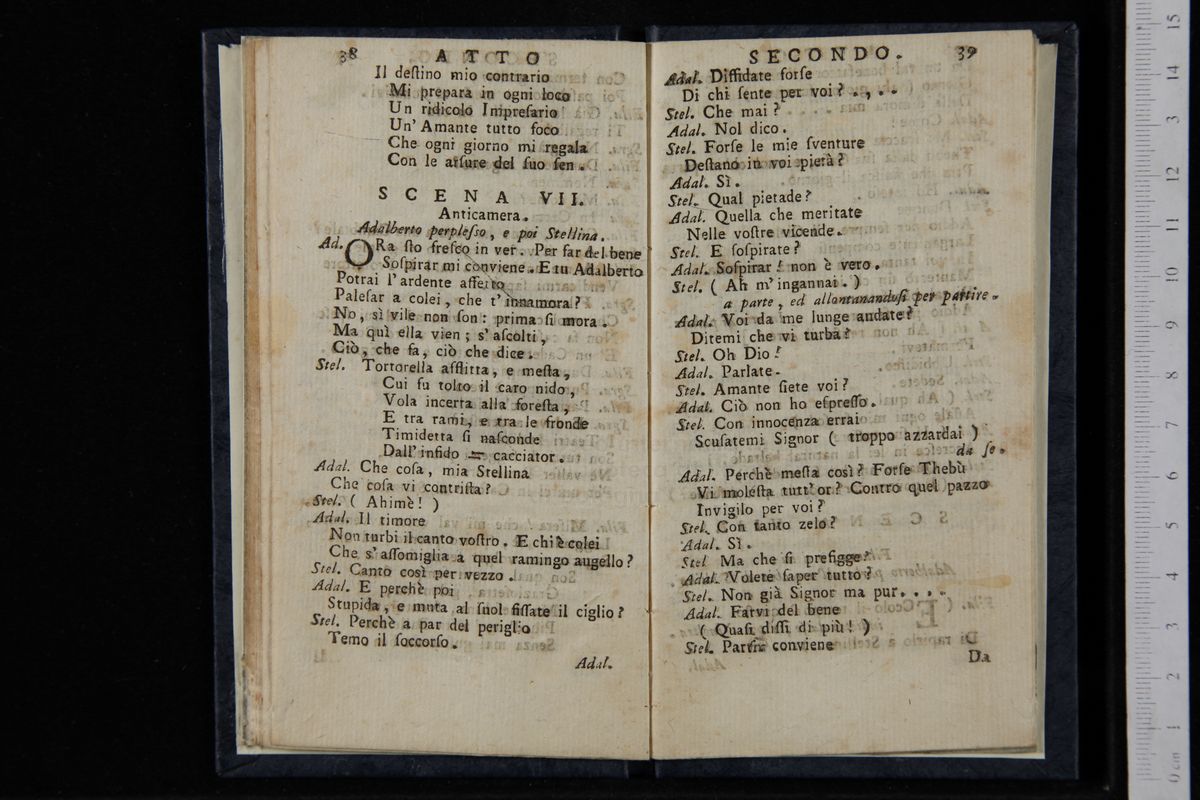 38 ATTO
Il deſtino mio contrario
Mi prepara in ogni loco
Un ridicolo Impreſario
Un' Amante tutto foco
Che ogni giorno mi regala
Con le arſure del ſuo ſen.
SCENA VII.
Anticamera.
Adalberto perpleſſo, e poi Stellina.
Ad. ORa ſto freſco in ver. Per far del bene
Soſpirar mi conviene. E tu Adalberto
Potrai l'ardente affetto
Paleſar a colei, che t'innamora?
No, sì vile non ſon: prima ſi mora.
Ma quì ella vien; s'aſcolti,
Ciò, che fa, ciò che dice.
Stel. Tortorella afflitta, e meſta,
Cui fu tolto il caro nido,
Vola incerta alla foreſta,
E tra rami, e tra le fronde
Timidetta ſi naſconde
Dall' infido cacciator.
Adal. Che coſa, mia Stellina
Che coſa vi contriſta?
Stel. ( Ahimè! )
Adal. Il timore
Non turbi il canto voſtro. E chi è colei
Che s'aſſomiglia a quel ramingo augello?
Stel. Canto così per vezzo.
Adal. E perchè poi
Stupida, e muta al ſuol fiſſate il ciglio?
Stel. Perchè a par del periglio
Temo il ſoccorſo.
Adal.
SECONDO. 39
Adal. Diffidate forſe
Di chi ſente per voi? . , . .
Stel. Che mai?
Adal. Nol dico.
Stel. Forſe le mie ſventure
Deſtano in voi pietà?
Adal. Sì.
Stel. Qual pietade?
Adal. Quella che meritate
Nelle voſtre vicende.
Stel. E ſoſpirate?
Adal. Soſpirar! non è vero.
Stel. ( Ah m'ingannai. )
a parte, ed allontanandoſi per partire.
Adal. Voi da me lunge andate?
Ditemi che vi turba?
Stel. Oh Dio!
Adal. Parlate.
Stel. Amante ſiete voi?
Adal. Ciò non ho eſpreſſo.
Stel. Con innocenza errai
Scuſatemi Signor ( troppo azzardai )
da ſe.
Adal. Perchè meſta così? Forſe Thebù
Vi moleſta tutt'or? Contro quel pazzo
Invigilo per voi?
Stel. Con tanto zelo?
Adal. Sì.
Stel Ma che ſi prefigge?
Adal. Volete ſaper tutto?
Stel. Non già Signor ma pur. . . .
Adal. Farvi del bene
( Quaſi diſſi di più! )
Stel. Partir conviene
Da
15
14
13
12
11
10
9
8
7
6
5
4
3
2
1
0 cm